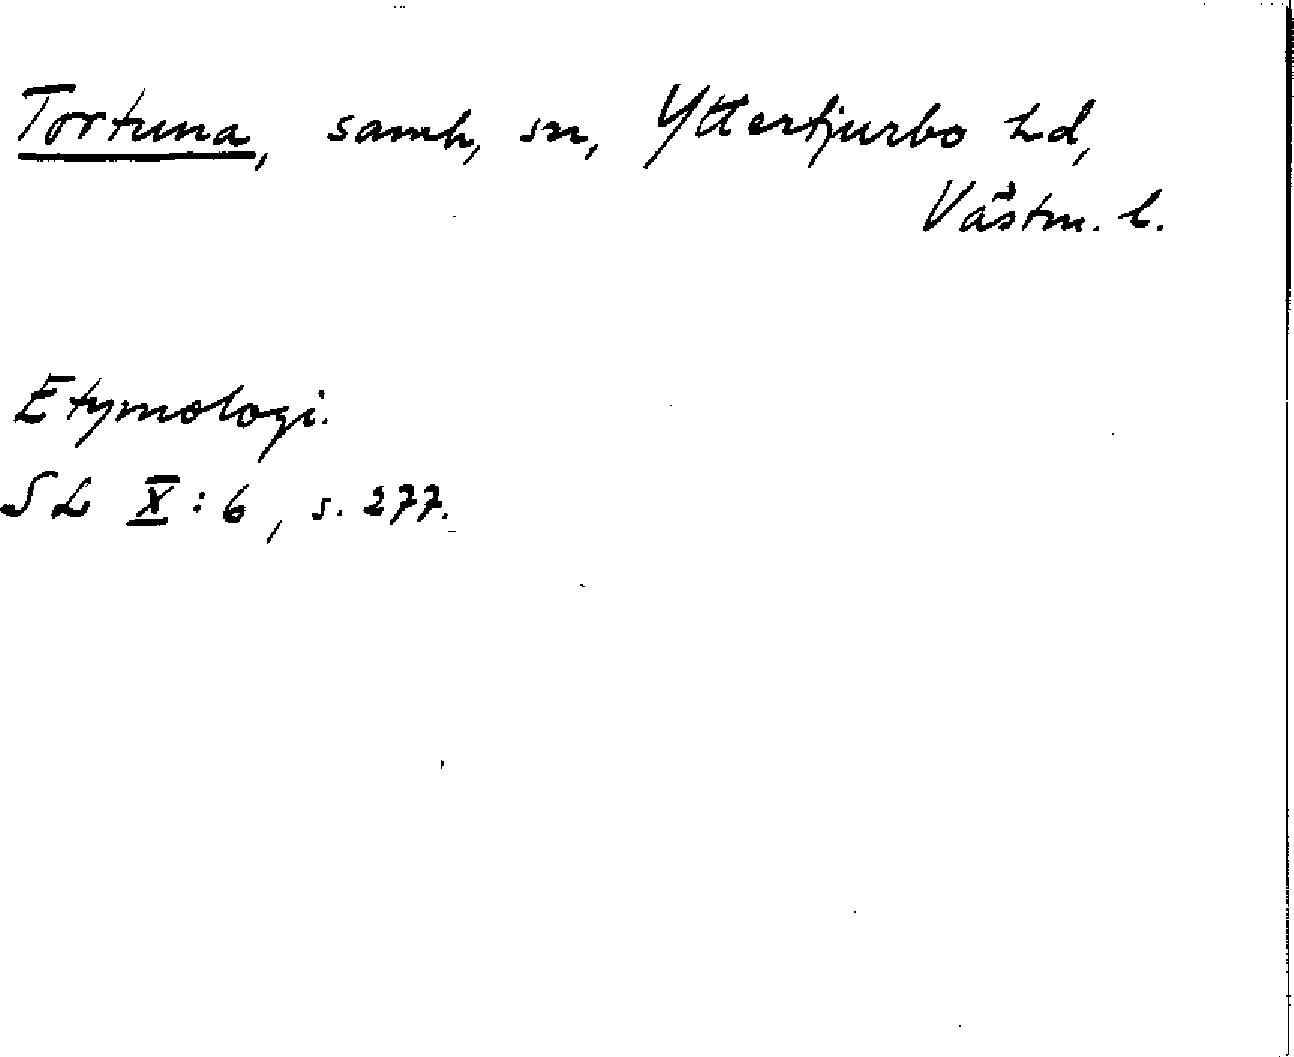 Tortuna, samh, sn, Yttertjurbo hd,
Västm. l.
Etymologi.
SL X:6, s. 277.